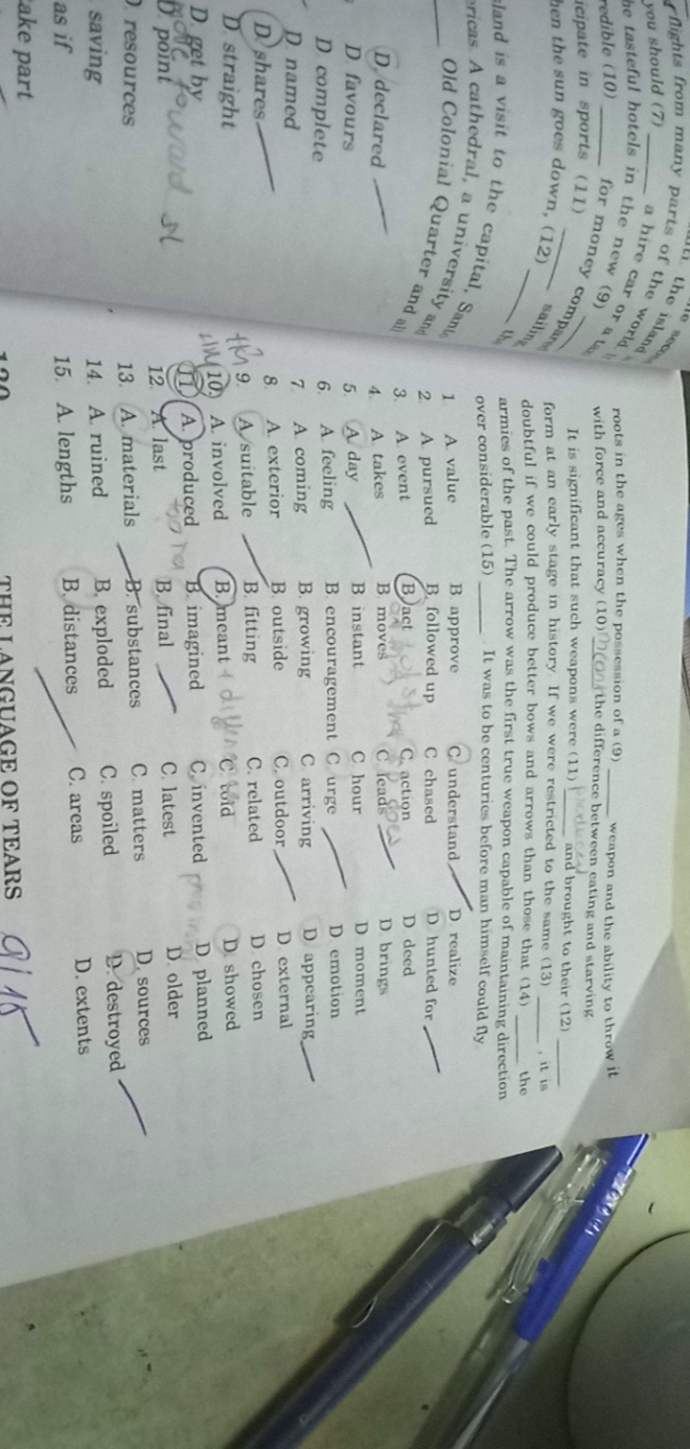 flights from many parts of the island
you should (7) ____ a hire car
the tasteful hotels in the new or
(10) ____ for money
in sports (11) ____
when the sun goes down, (12) ____ sailing
is a visit to the capital,
A cathedral, a university and
____ Old Colonial Quarter and all
D. declared
D. favours
D. complete
D. named
D. shares
D. straight
D. get by
D. point
D. resources
saving
as if
take part
roots in the ages when the possession of a (9) ____ weapon and the ability to throw it
with force and accuracy (10) meant the difference between eating and starving
It is significant that such weapons were (11) produced and brought to their (12) ____
form at an early stage in history. If we were restricted to the same (13) ____, it is
doubtful if we could produce better bows and arrows than those that (14) ____ the
armies of the past. The arrow was the first true weapon capable of maintaining direction
over considerable (15) ____. It was to be centuries before man himself could fly
1. A. value B. approve C. understand D. realize
2. A. pursued B. followed up C. chased D. hunted for
3. A. event B. act C. action D. deed
4. A. takes B. moves C. leads D. brings
5. A. day B. instant C. hour D. moment
6. A. feeling B. encouragement C. urge D. emotion
7. A. coming B. growing C. arriving D. appearing
8. A. exterior B. outside C. outdoor D. external
9. A. suitable B. fitting C. related D. chosen
10. A. involved B. meant C. told D. showed
11. A. produced B. imagined C. invented D. planned
12. A. last B. final C. latest D. older
13. A. materials B. substances C. matters D. sources
14. A. ruined B. exploded C. spoiled D. destroyed
15. A. lengths B. distances C. areas D. extents
THE LANGUAGE OF TEARS
9/15